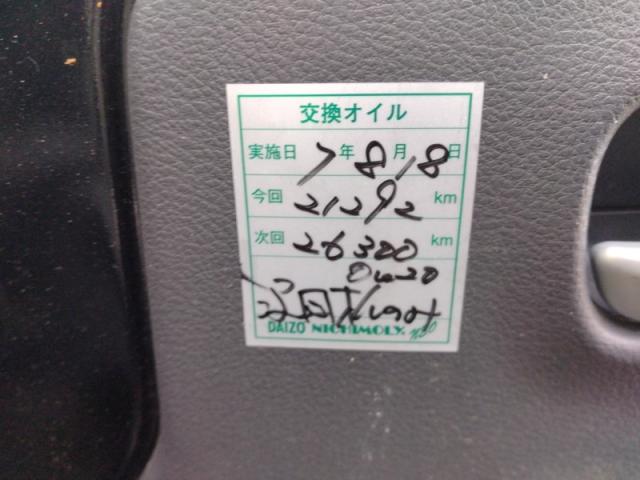 交換オイル
実施日 7年 8月 18日
今回 21292 km
次回 26300 km
0W20
DAIZO NICHIMOLY